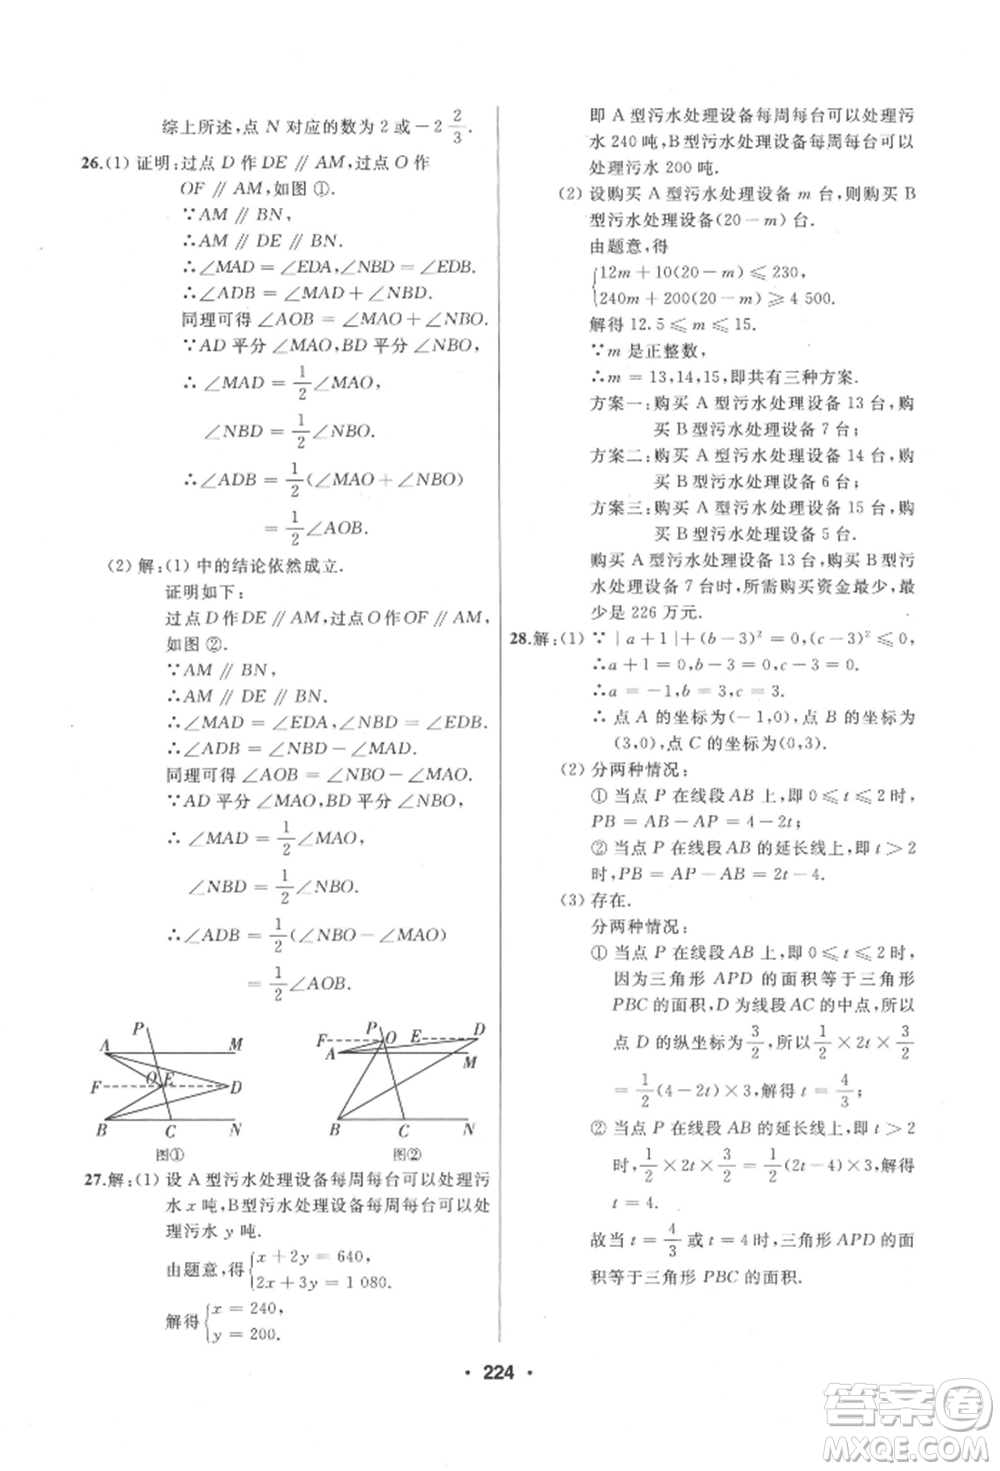 综上所述,点 N 对应的数为 2 或-2 2/3.
26.(1) 证明:过点 D 作 DE ∥ AM,过点 O 作
OF ∥ AM,如图 ①.
∵AM ∥ BN,
∴AM ∥ DE ∥ BN.
∴∠MAD = ∠EDA,∠NBD = ∠EDB.
∴∠ADB = ∠MAD + ∠NBD.
同理可得 ∠AOB = ∠MAO + ∠NBO.
∵AD 平分 ∠MAO,BD 平分 ∠NBO,
∴ ∠MAD = 1/2 ∠MAO,
∠NBD = 1/2 ∠NBO.
∴ ∠ADB = 1/2 (∠MAO + ∠NBO)
= 1/2 ∠AOB.
(2) 解:(1) 中的结论依然成立.
证明如下:
过点 D 作 DE ∥ AM,过点 O 作 OF ∥ AM,
如图 ②.
∵AM ∥ BN,
∴AM ∥ DE ∥ BN.
∴∠MAD = ∠EDA,∠NBD = ∠EDB.
∴∠ADB = ∠NBD − ∠MAD.
同理可得 ∠AOB = ∠NBO − ∠MAO.
∵AD 平分 ∠MAO,BD 平分 ∠NBO,
∴ ∠MAD = 1/2 ∠MAO,
∠NBD = 1/2 ∠NBO.
∴ ∠ADB = 1/2 (∠NBO − ∠MAO)
= 1/2 ∠AOB.
P
A M
F O E D
B C N
图①
P
F O E D
A M
B C N
图②
27.解:(1) 设 A 型污水处理设备每周每台可以处理污
水 x 吨,B 型污水处理设备每周每台可以处
理污水 y 吨.
由题意,得 { x + 2y = 640,
2x + 3y = 1 080.
解得 { x = 240,
y = 200.
即 A 型污水处理设备每周每台可以处理污
水 240 吨,B 型污水处理设备每周每台可以
处理污水 200 吨.
(2) 设购买 A 型污水处理设备 m 台,则购买 B
型污水处理设备(20 − m) 台.
由题意,得
{ 12m + 10(20 − m) ⩽ 230,
240m + 200(20 − m) ⩾ 4 500.
解得 12.5 ⩽ m ⩽ 15.
∵m 是正整数,
∴m = 13,14,15,即共有三种方案.
方案一:购买 A 型污水处理设备 13 台,购
买 B 型污水处理设备 7 台;
方案二:购买 A 型污水处理设备 14 台,购
买 B 型污水处理设备 6 台;
方案三:购买 A 型污水处理设备 15 台,购
买 B 型污水处理设备 5 台.
购买 A 型污水处理设备 13 台,购买 B 型污
水处理设备 7 台时,所需购买资金最少,最
少是 226 万元.
28.解:(1) ∵ | a + 1 | + (b − 3)² = 0,(c − 3)² ⩽ 0,
∴a + 1 = 0,b − 3 = 0,c − 3 = 0.
∴a = −1,b = 3,c = 3.
∴ 点 A 的坐标为(−1,0),点 B 的坐标为
(3,0),点 C 的坐标为(0,3).
(2) 分两种情况:
① 当点 P 在线段 AB 上,即 0 ⩽ t ⩽ 2 时,
PB = AB − AP = 4 − 2t;
② 当点 P 在线段 AB 的延长线上,即 t > 2
时,PB = AP − AB = 2t − 4.
(3) 存在.
分两种情况:
① 当点 P 在线段 AB 上,即 0 ⩽ t ⩽ 2 时,
因为三角形 APD 的面积等于三角形
PBC 的面积,D 为线段 AC 的中点,所以
点 D 的纵坐标为 3/2,所以 1/2 × 2t × 3/2
= 1/2 (4 − 2t) × 3,解得 t = 4/3;
② 当点 P 在线段 AB 的延长线上,即 t > 2
时,1/2 × 2t × 3/2 = 1/2 (2t − 4) × 3,解得
t = 4.
故当 t = 4/3 或 t = 4 时,三角形 APD 的面
积等于三角形 PBC 的面积.
· 224 ·
答案卷
MXQE.COM